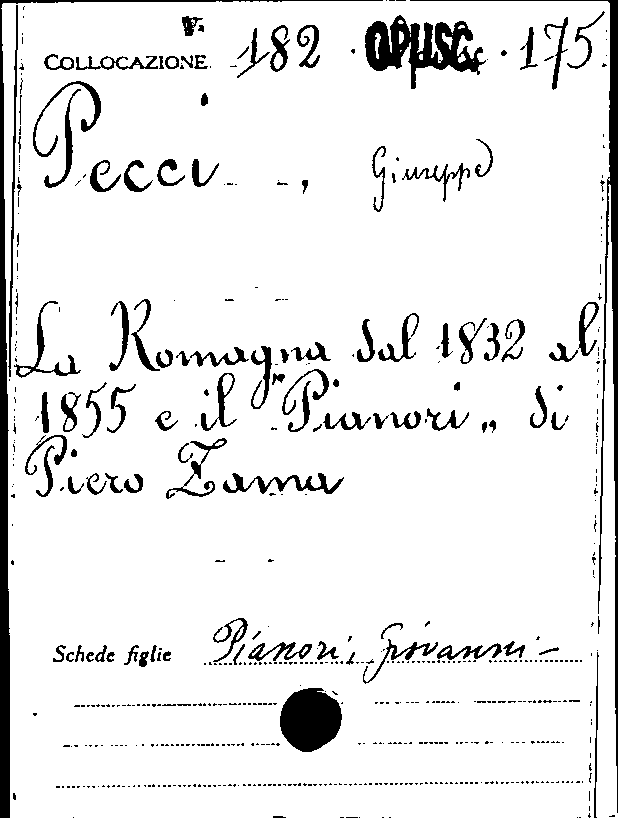 V.
COLLOCAZIONE 182 . OPUSC. . 175
Pecci , Giuseppe
La Romagna dal 1832 al
1855 e il "Pianori„ di
Piero Zama
Schede figlie Pianori, Giovanni -